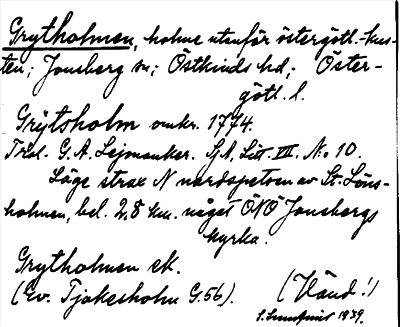 Grytholmen, holme utanför östergötl. kus-
ten; Jonsberg sn; Östkinds hd; Öster-
götl. l.
Grÿtsholm omkr. 1774.
Trol. G. A. Lejonanker. SjA, Litt VII, No 10.
Läge strax N nordspetsen av St. Löns-
holmen, bel. 2,8 km. något ÖNÖ Jonsbergs
kyrka.
Grytholmen ek.
(Gv. Tjakesholm G.56). (Vänd!)
1939.